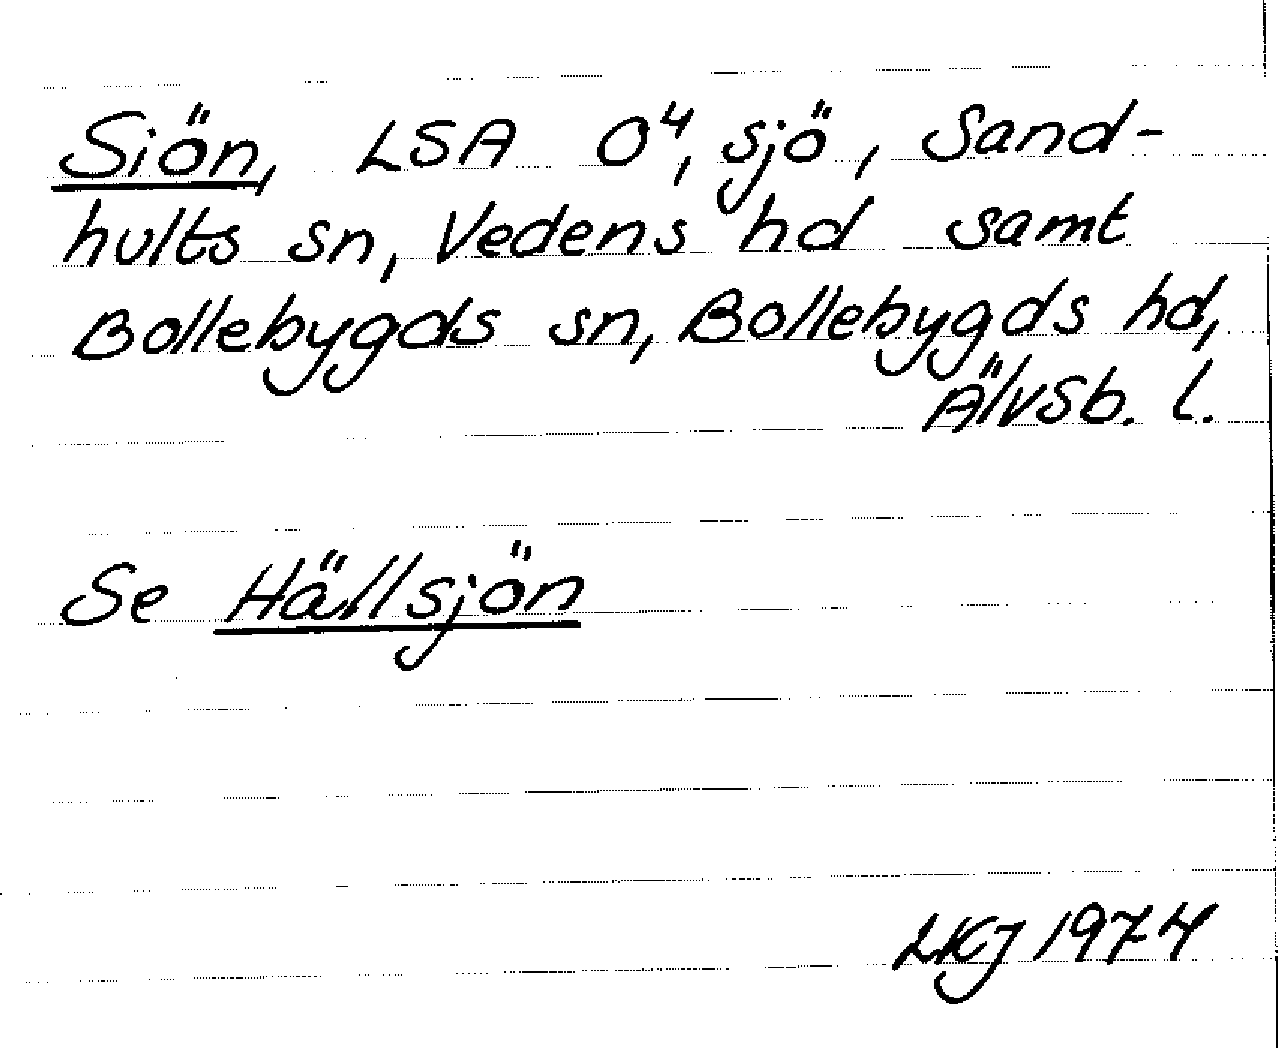 Siön, LSA O⁴, sjö, Sand-
hults sn, Vedens hd samt
Bollebygds sn, Bollebygds hd,
Älvsb. l.
Se Hällsjön
LKJ 1974